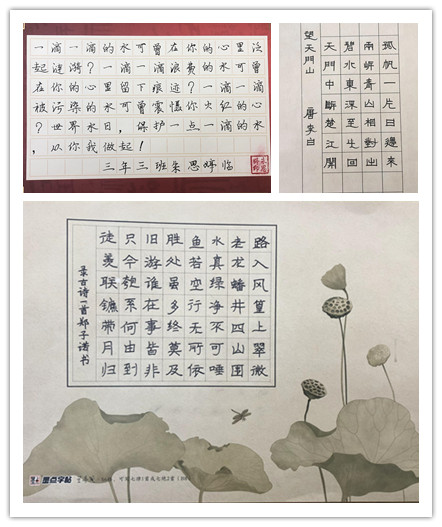 一滴一滴的水可曾在你的心里泛
起涟漪？一滴一滴浪费的水可曾
在你的心里留下痕迹？一滴一滴
被污染的水可曾震慑你火红的心
？世界水日，保护一点一滴的水
，从你我做起！
三年三班朱思婷临
望天門山 唐李白
天門中斷楚江開
碧水東流至此回
兩岸青山相對出
孤帆一片日邊來
路入风篁上翠微
老龙蟠井四山围
水真绿净不可唾
鱼若空行无所依
胜处虽多终莫及
旧游谁在事皆非
只今匏系何由到
徒羡联镳带月归
录古诗一首郑子 书
墨点字帖